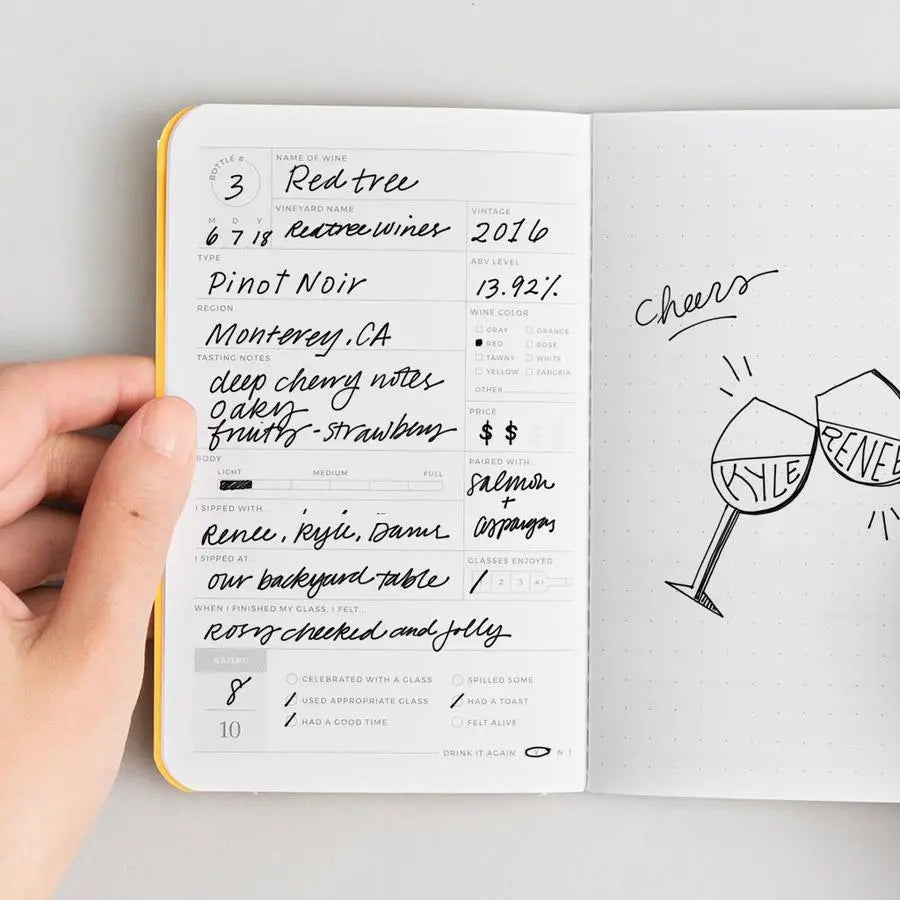 BOTTLE #
3
NAME OF WINE
Redtree
M D Y
6 7 18
VINEYARD NAME
Redtree Wines
VINTAGE
2016
TYPE
Pinot Noir
ABV LEVEL
13.92%
REGION
Monterey, CA
WINE COLOR
GRAY ORANGE
RED ROSE
TAWNY WHITE
YELLOW SANGRIA
OTHER
TASTING NOTES
deep cherry notes
oaky
fruity - strawberry
PRICE
$ $
BODY
LIGHT MEDIUM FULL
PAIRED WITH...
salmon
+
asparagus
I SIPPED WITH...
Renee, Kyle,
I SIPPED AT...
our backyard table
GLASSES ENJOYED
2 3 4+
WHEN I FINISHED MY GLASS, I FELT...
rosy cheeked and jolly
RATING
8
10
CELEBRATED WITH A GLASS SPILLED SOME
USED APPROPRIATE GLASS HAD A TOAST
HAD A GOOD TIME FELT ALIVE
DRINK IT AGAIN Y N
Cheers
KYLE
RENEE